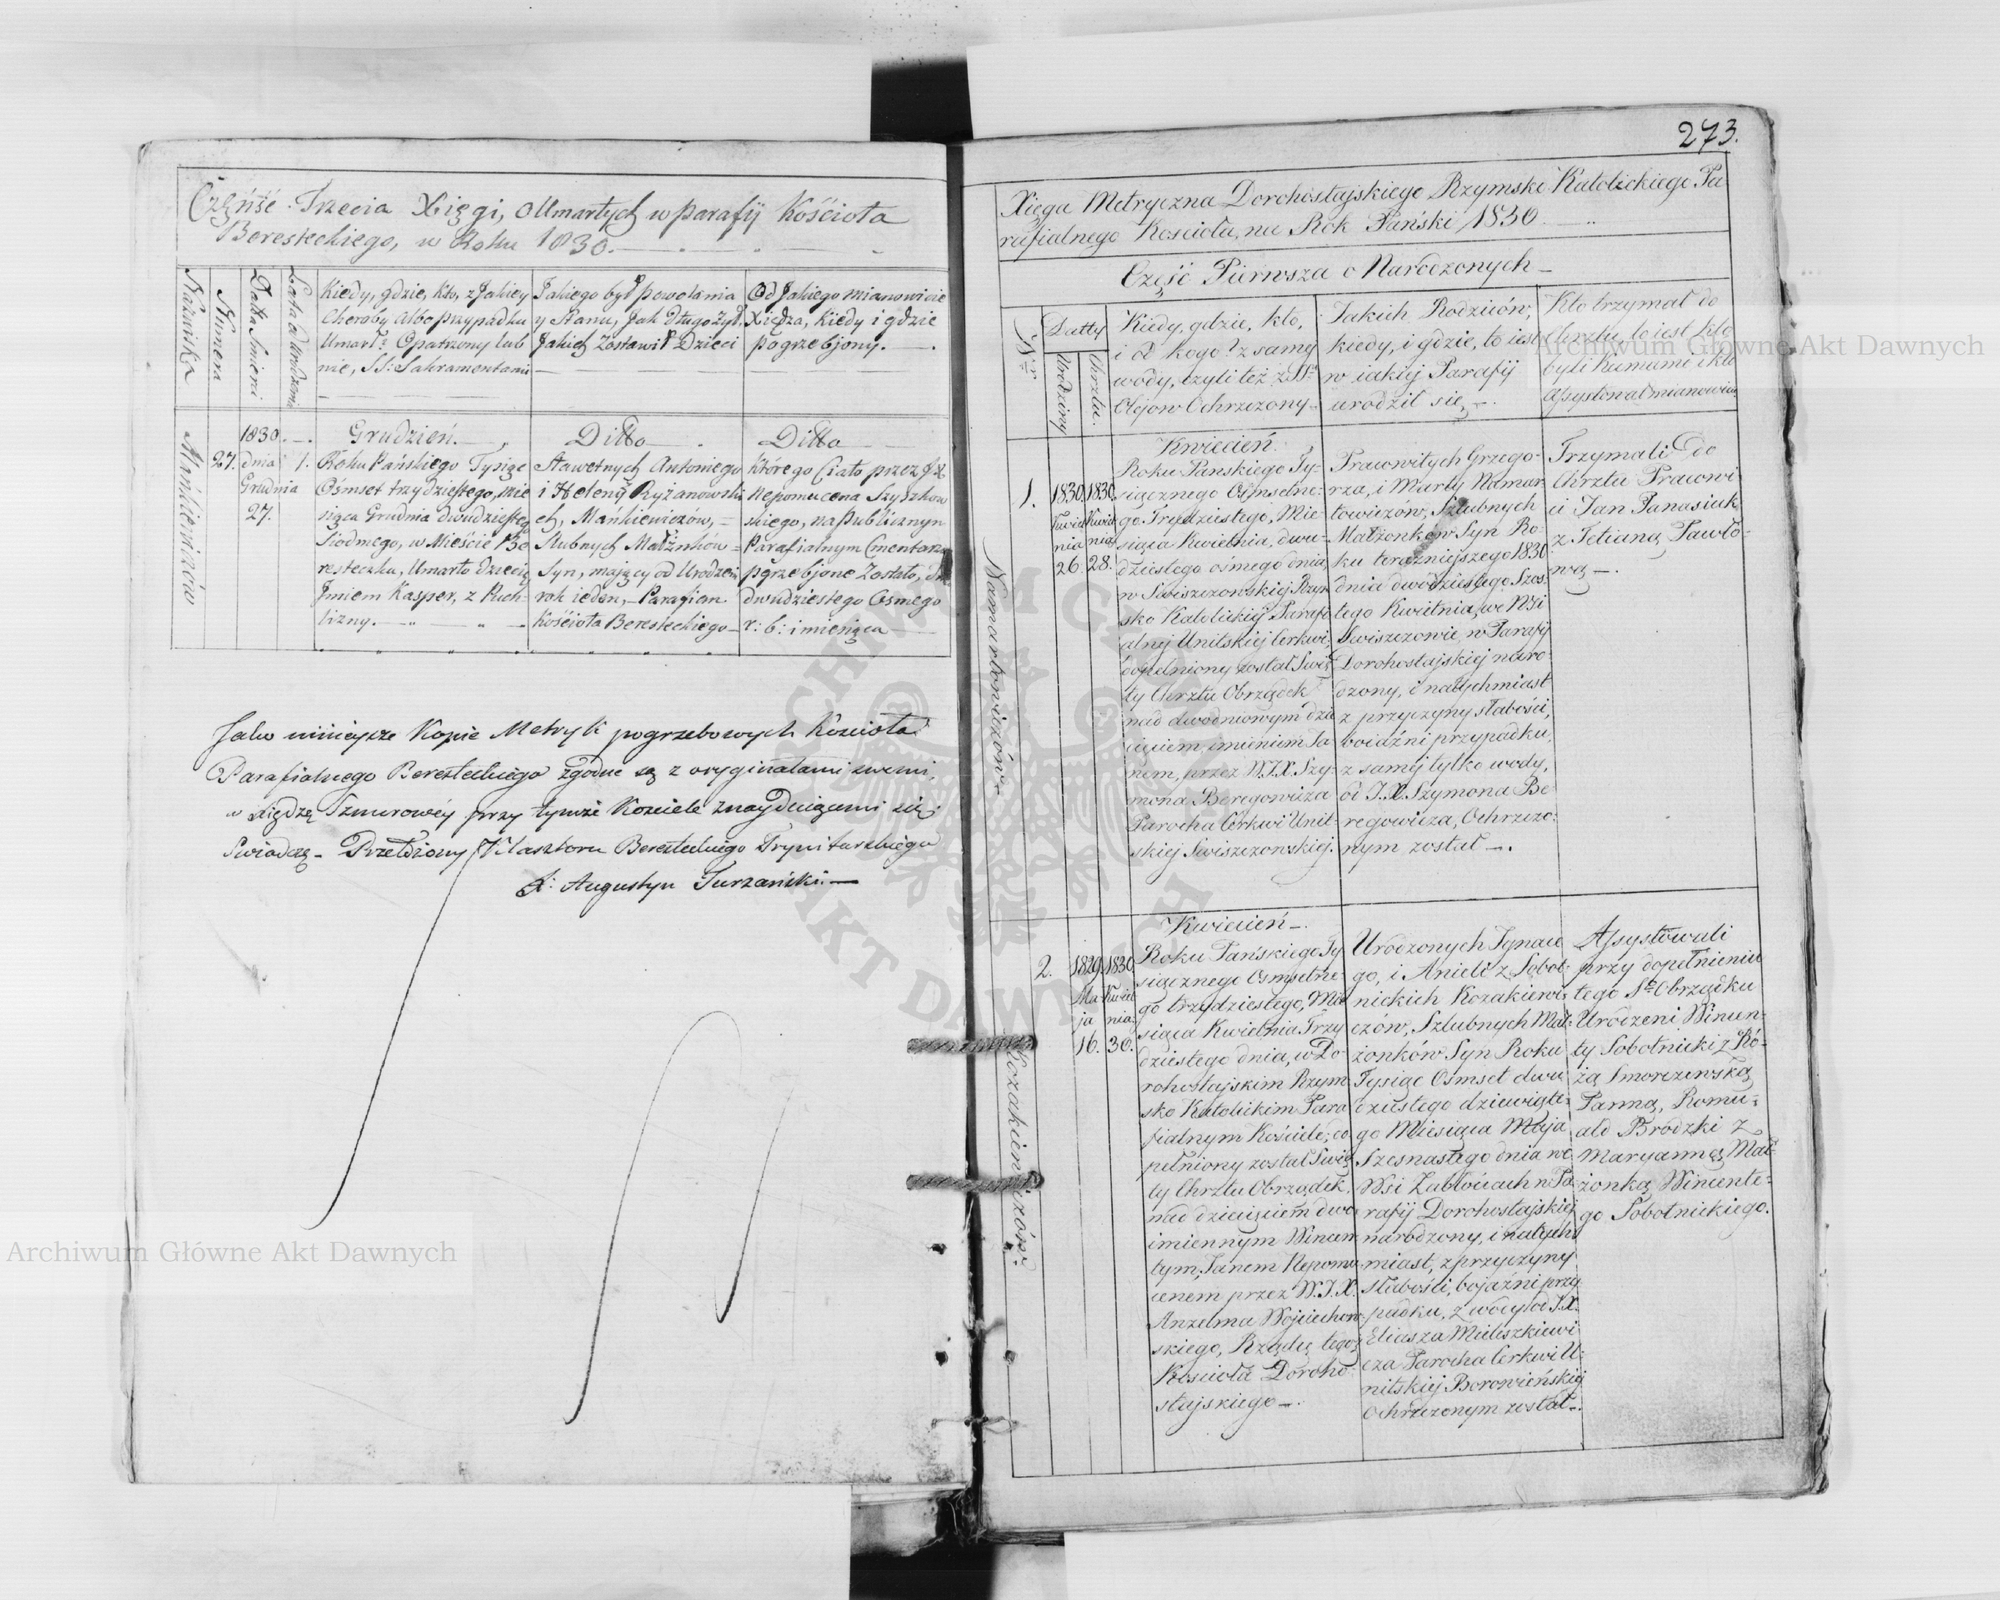 Część Trzecia Xięgi, o Umarłych w parafij Kościoła
Beresteckiego, w Roku 1830.
Nazwiska
Numera
Datta Śmierci
Lata od Urodzenia
Kiedy, gdzie, kto, z Jakiey
Choroby albo przypadku
Umarł? Opatrzony lub
nie, SS: Sakramentami
Jakiego był powołania
y Stanu, Jak długo żył,
Jakich zostawił Dzieci
Od Jakiego mianowicie
Xiędza, kiedy i gdzie
pogrzebjony.
Mańkiewiczów
27.
1830
dnia
Grudnia
27.
1.
Grudzień.
Roku Pańskiego Tysiąc
Ośmset trzydziestego, mie
siąca Grudnia dwudziestego
Siodmego, w Mieście Be
resteczku, Umarło dziecię
Jmiem Kasper, z Puch-
lizny.
Ditto
Sławetnych Antoniego
i Heleny z Ryżanowski
ch, Mańkiewiczów,
Slubnych Małżnków
Syn, mający od Urodzen
rok ieden, Parafian
Kościoła Beresteckiego
Ditto
którego Ciało przez J.X.
Nepomucena Szyszkow
skiego, na publicznym
Parafialnym Cmentarzu
pgrzebjone Zostało, d.
dwudziestego Osmego
r: b: i miesiąca
Jako niniejsze Kopie Metryk pogrzebowych Kościoła
Parafialnego Beresteckiego zgodne są z oryginałami swemi,
w xiędze Sznurowéy przy tymże Kosciele znayduiącemi się
Swiadczę - Przełożony Klasztoru Beresteckiego Trynitarskiego
X: Augustyn Turzański
273.
Xięga Metryczna Dorohostajskiego Rzymsko Katolickiego Pa-
rafialnego Koscioła, na Rok Pański 1830
Część Pierwsza o Narodzonych
Nr
Datty
Urodzin
Chrztu.
Kiedy, gdzie, kto,
i od kogo? z samey
wody, czyli też z SS:
Olejow Ochrzczony
Jakich Rodziców,
kiedy, i gdzie, to iest
w iakiej Parafij
urodził się,
Kto trzymał do
Chrztu, to iest kto
byli Kumami i kto
Assystował mianowicie
Namartowiczów
1.
1830
Kwie
nia
26.
1830.
Kwie
nia
28.
Kwiecień.
Roku Pańskiego Ty-
siącznego Osmsetne-
go Trzydziestego, Mie-
siąca Kwietnia, dwu-
dziestego osmego dnia
w Swiszczowskiej Rzym
sko Katolickiej Parafi
alnej Unitskiej Cerkwi,
dopełniony został Swię
ty Chrztu Obrządek
nad dwódniowym dzie
cięciem imieniem Ja
nem, przez W.J.X. Szy-
mona Beregowicza
Parocha Cerkwi Unit-
skiej Swiszczowskiej.
Pracowitych Grzego-
rza, i Marty Namar
towiczow, Szlubnych
Małżonków Syn Ro-
ku teraźniejszego 1830
dnia dwódziestego Szos-
tego Kwietnia, we Wsi
Swiszczowie, w Parafij
Dorohostajskiej naro-
dzony, i natychmiast
z przyczyny słabości,
boiaźni przypadku,
z saméj tylko wody,
od J.X. Szymona Be
regowicza, Ochrzczo-
nym został
Trzymali do
Chrztu Pracowi
ci Jan Panasiuk
z Tetianą Pawło-
wą
Kozakiewiczów
2.
1829
Ma
ja
16.
1830
Kwiet
nia
30.
Kwiecień
Roku Pańskiego Ty
siącznego Osmsetne-
go trzydziestego, Mie
siąca Kwietnia Trzy
dziestego dnia, w Do-
rohostajskim Rzym
sko Katolickim Para
fialnym Kosciele, do
pełniony został Swię
ty Chrztu Obrządek,
nad dziecięciem dwo
imiennym Wincen
tym, Janem Nepomu
cenem przez W.J.X.
Anzelma Wojciechow
skiego, Rządcę tegoż
Kosciola Doroho
stajskiego
Urodzonych Ignace
go, i Anieli z Sobot-
nickich Kozakiewi-
czów, Szlubnych Mał-
żonków Syn Roku
Tysiąc Osmset dwu
dziestego dziewiąte-
go Miesiąca Maja
Szesnastego dnia we
Wsi Zabłociach w Pa
rafij Dorohostajskiej
narodzony, i natych
miast, z przyczyny
słabości, bojaźni przy
padku, z wody od J.X.
Eliasza Mieliszkiewi
cza Parocha Cerkwi U-
nitskiej Borowieńskiej
Ochrzczonym został
Assystowali
przy dopełnieniu
tego So Obrządku
Urodzeni Wincen-
ty Sobotnicki z Ró-
żą Smorczewską
Panną, Romu-
ald Brodzki z
Maryanną Mał-
żonką Wincente-
go Sobotnickiego.
Archiwum Główne Akt Dawnych
Archiwum Główne Akt Dawnych
ARCHIWUM GŁÓWNE
AKT DAWNYCH